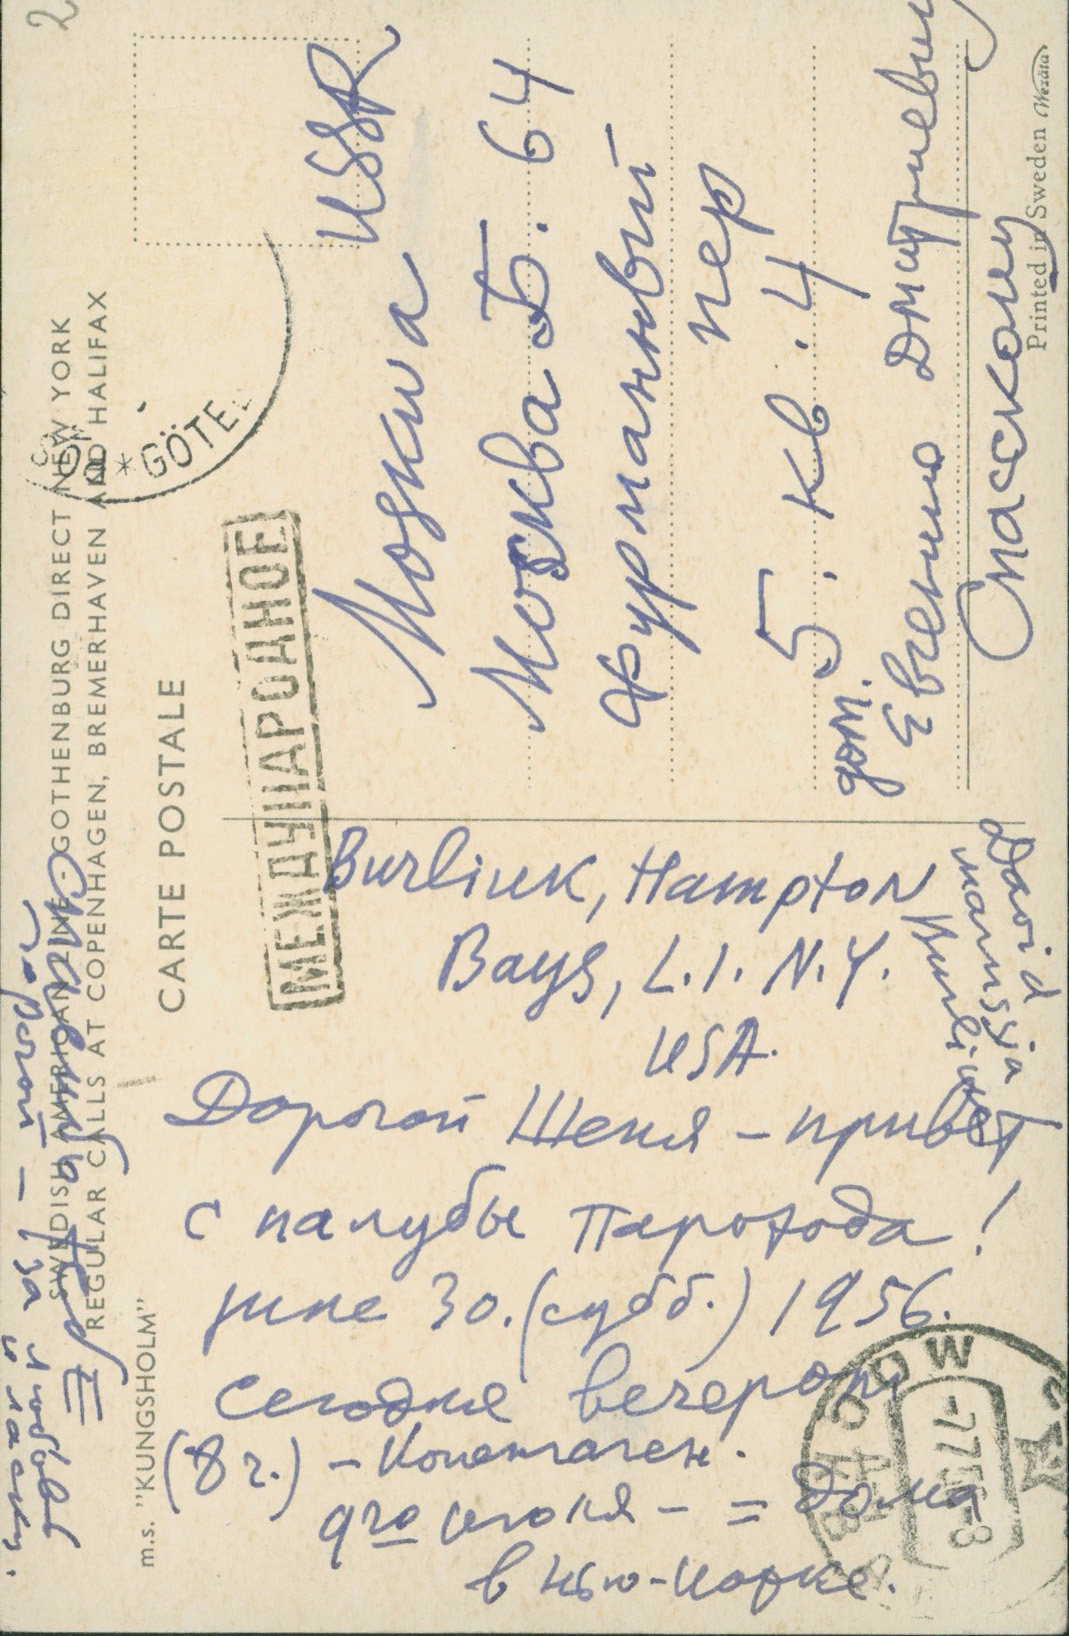 SWEDISH AMERICAN LINE GOTHENBURG DIRECT NEW YORK
REGULAR CALLS AT COPENHAGEN, BREMERHAVEN AND HALIFAX
m.s. "KUNGSHOLM"
CARTE POSTALE
МЕЖДУНАРОДНОЕ
GÖTE
2
Burliuk, Hampton
Bays, L.I. N.Y.
USA.
Дорогой Женя – привет
с палубы парохода!
june 30. (субб.) 1956.
Сегодня вечером
(8 ч.) – Копенгаген.
9го июля – = дома
в Нью-Йорке.
David
marussja
Burliuk
Спасибо
дорогой – за любовь
и ласку.
Москва USSR
Москва Б. 64
Фурманный
пер
дом. 5. кв. 4
Евгению Дмитриевичу
Спасскому
Printed in Sweden Wezäta
МОСКВА
-7756-8